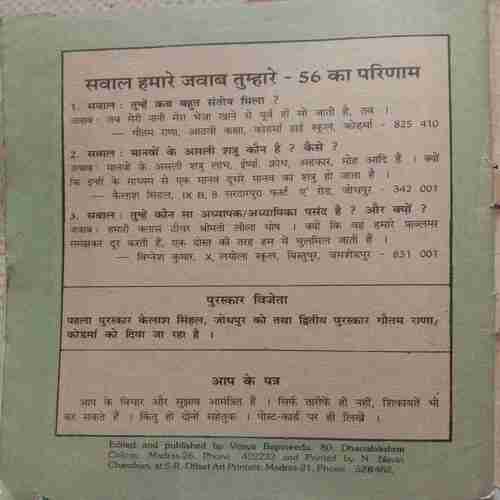 सवाल हमारे जवाब तुम्हारे - 56 का परिणाम
1. सवाल : तुम्हें कब बहुत संतोष मिला ?
जवाब : जब मेरी नानी मेरा भेजा खाने से पूर्व ही सो जाती है, तब ।
— गौतम राणा, आठवीं कक्षा, कोडर्मा हाई स्कूल, कोडर्मा - 825 410
2. सवाल : मानवों के असली शत्रु कौन है ? कैसे ?
जवाब : मानवों के असली शत्रु लोभ, ईर्ष्या, क्रोध, अहंकार, मोह आदि हैं । क्यों
कि इन्हीं के माध्यम से एक मानव दूसरे मानव का शत्रु हो जाता है ।
— कैलाश सिंहल, IX B, 8 सरदारपुरा फर्स्ट 'ए' रोड, जोधपुर - 342 001
3. सवाल : तुम्हें कौन सा अध्यापक/अध्यापिका पसंद है ? और क्यों ?
जवाब : हमारी क्लास टीचर श्रीमती लीला घोष । क्यों कि वह हमारे प्राब्लम्स
समझकर दूर करती हैं, एक दोस्त की तरह हम में घुलमिल जाती हैं ।
— विग्नेश कुमार, X, लयोला स्कूल, बिस्तुपुर, जमशेडपुर - 831 001
पुरस्कार विजेता
पहला पुरस्कार कैलाश सिंहल, जोधपुर को तथा द्वितीय पुरस्कार गौतम राणा,
कोडर्मा को दिया जा रहा है ।
आप के पत्र
आप के विचार और सुझाव आमंत्रित हैं । सिर्फ तारीफें ही नहीं, शिकायतें भी
कर सकते हैं । किंतु हो दोनों सहेतुक । पोस्ट-कार्ड पर ही लिखें ।
Edited and published by Vasya Bapineedu, 80, Dhanalakshmi
Colony, Madras-26, Phone 422232 and Printed by N. Navin
Chandran, at S.R. Offset Art Printers, Madras-21, Phone